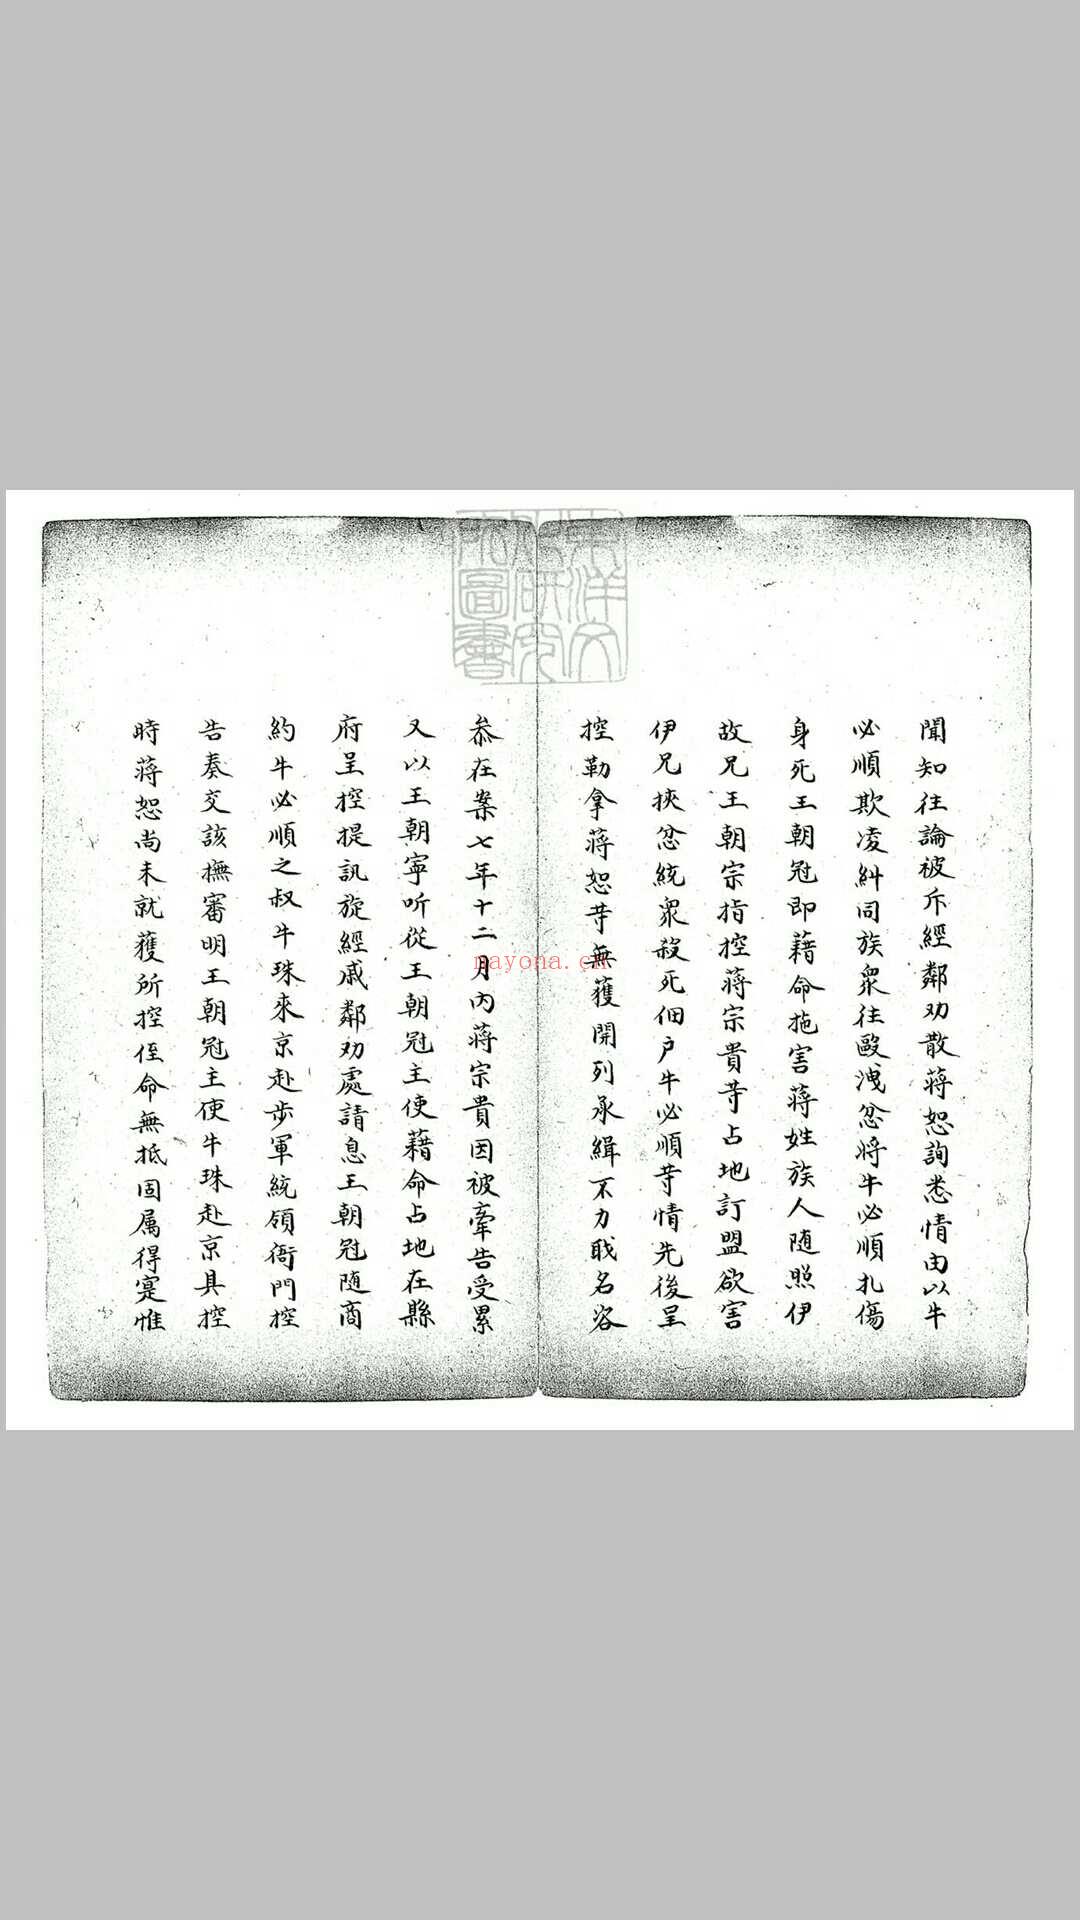 聞知往論被斥經鄰劝散蔣恕詢悉情由以牛
必順欺凌糾同族衆往毆洩忿將牛必順扎傷
身死王朝冠即藉命拖害蔣姓族人随照伊
故兄王朝宗指控蔣宗貴䓁占地訂盟欲害
伊兄挾忿統衆殺死佃户牛必順䓁情先後呈
控勒拿蔣恕䓁無獲開列承緝不力職名咨
叅在案七年十二月內蔣宗貴因被牽告受累
又以王朝寧听從王朝冠主使藉命占地在縣
府呈控提訊旋經戚鄰劝處請息王朝冠随商
約牛必順之叔牛珠來京赴步軍統領衙門控
告奏交該撫審明王朝冠主使牛珠赴京具控
時蔣恕尚未就獲所控侄命無抵固属得寔惟
東洋文
化研究
所圖書
nayona.cn